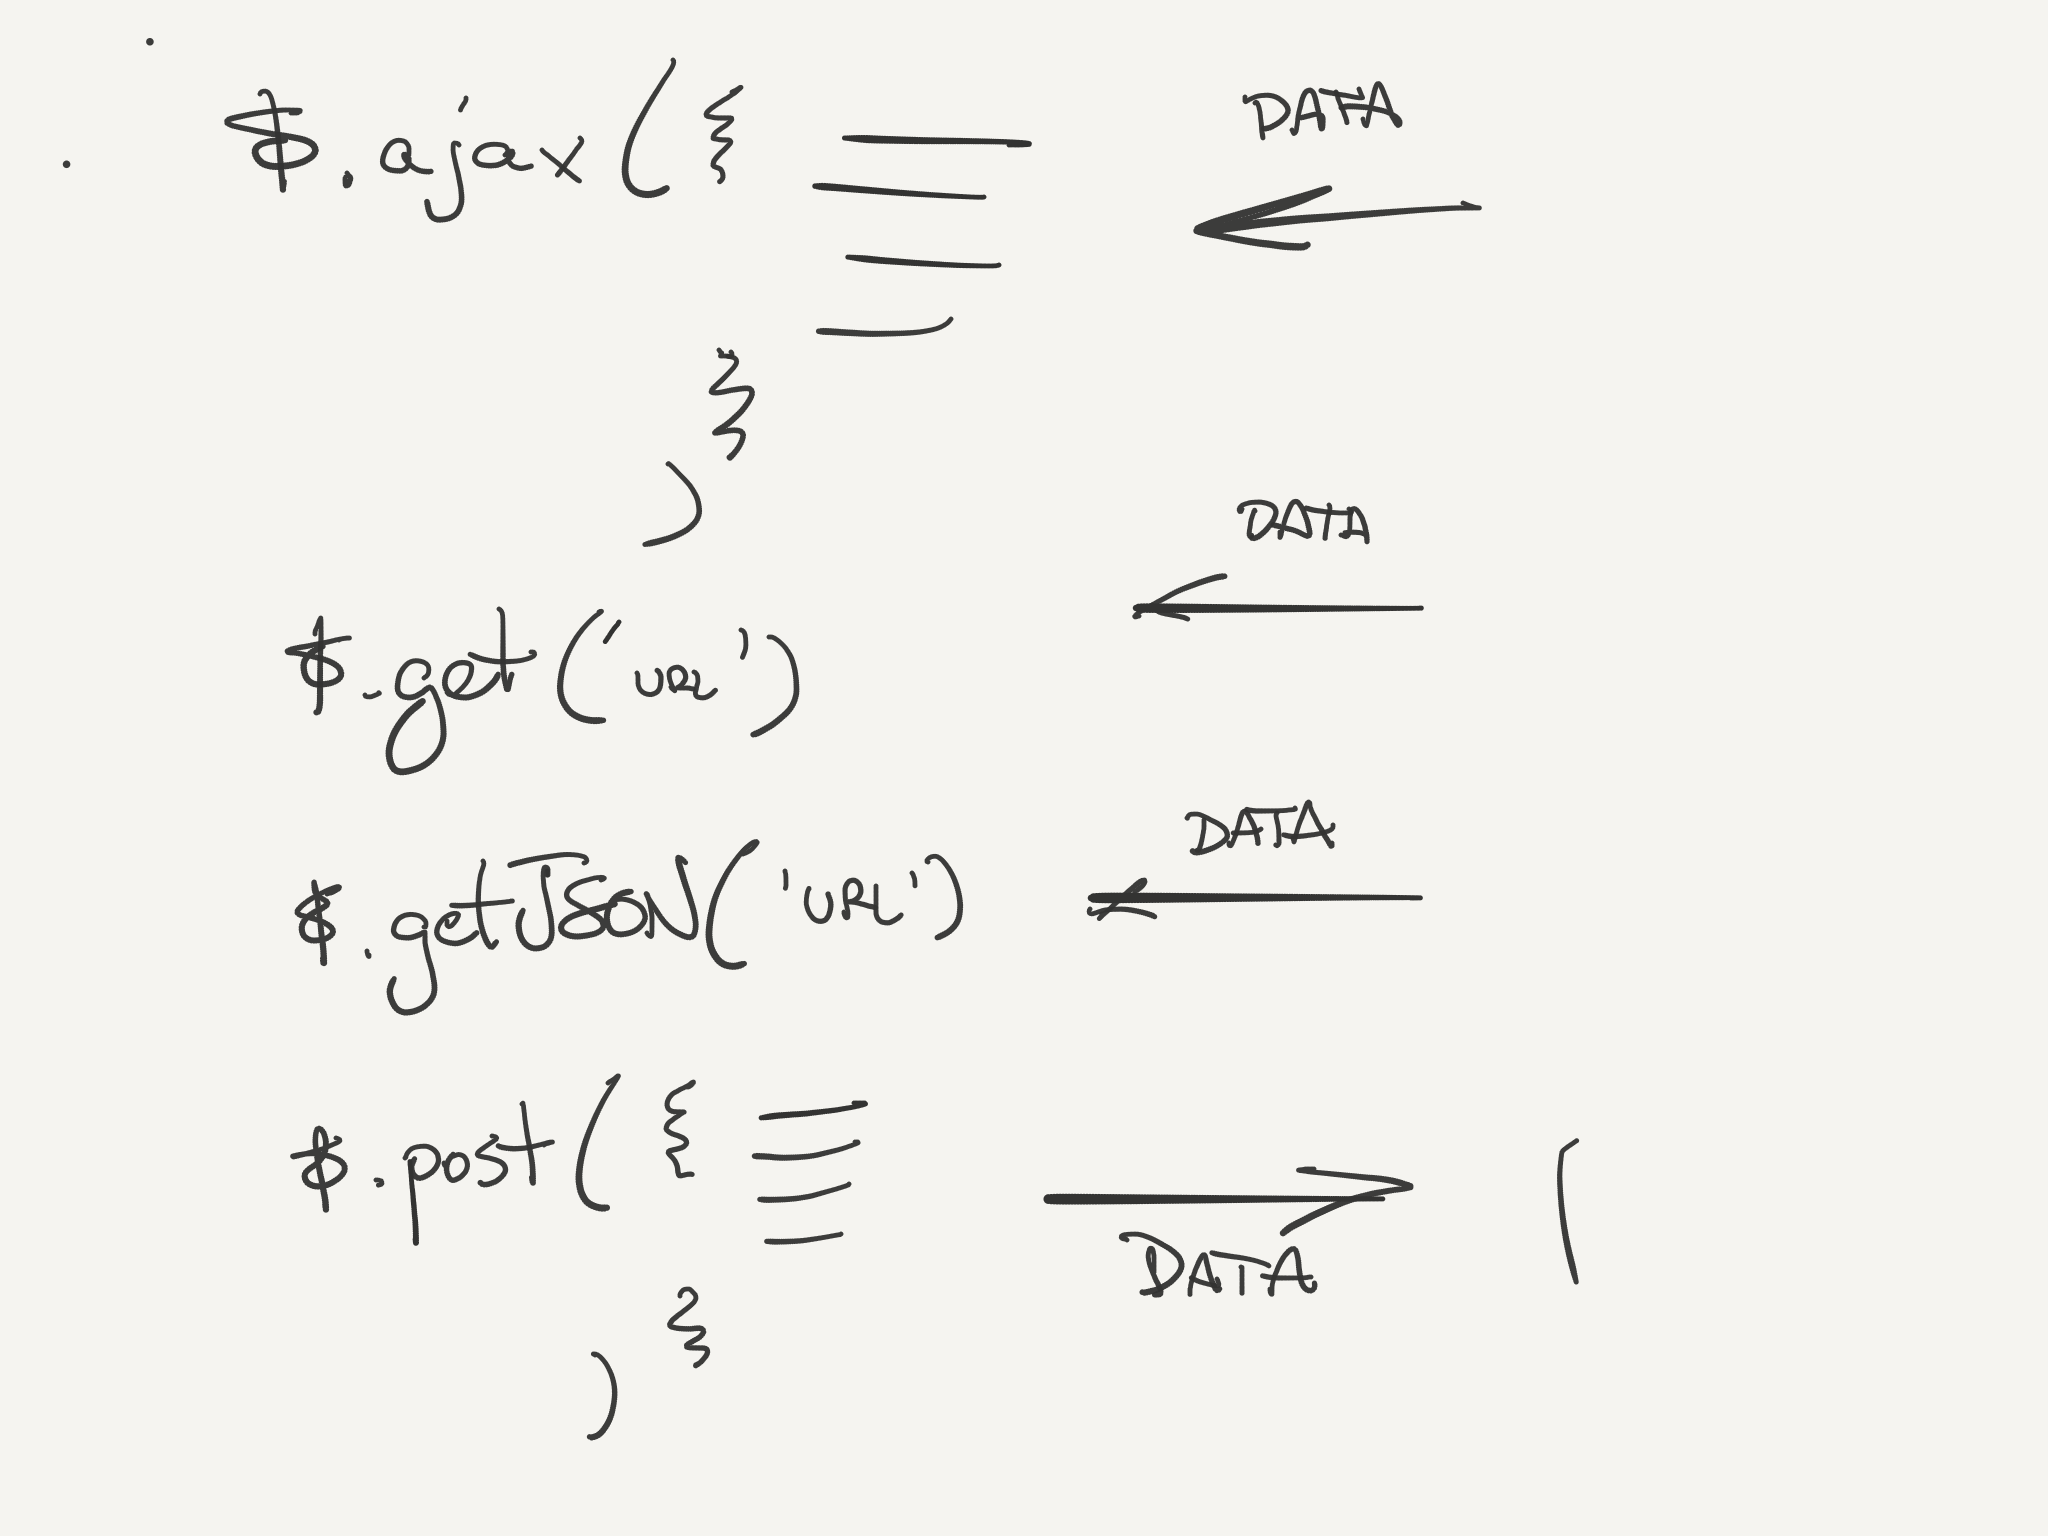 $.ajax({
DATA
}
)
DATA
$.get('URL')
DATA
$.getJSON('URL')
$.post({
DATA
}
)